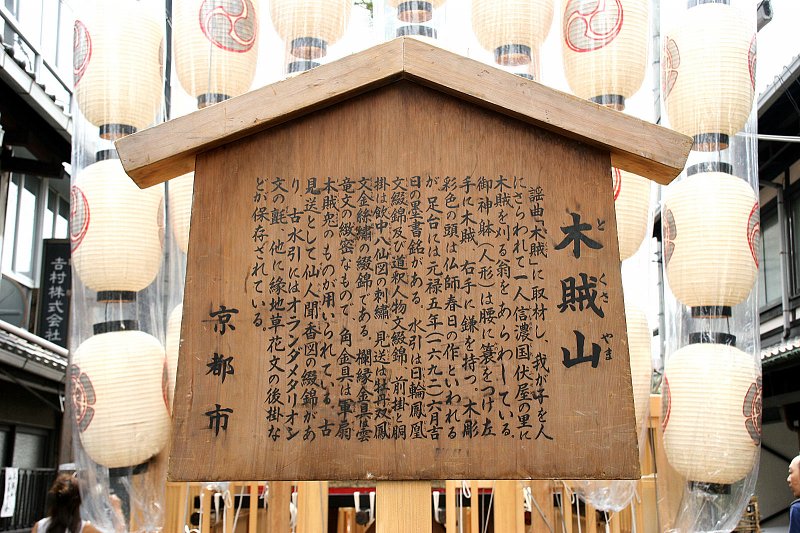 木賊山
とくさやま
謡曲「木賊」に取材し、我が子を人
にさらわれて一人信濃国伏屋の里に
木賊を刈る翁をあらわしている。
御神躰(人形)は腰に簑をつけ左
手に木賊、右手に鎌を持つ。木彫
彩色の頭は仏師春日の作といわれる
が、足台には元禄五年(一六九二)六月吉
日の墨書銘がある。水引は日輪鳳凰
文綴錦及び道釈人物文綴錦、前掛と胴
掛は飲中八仙図の刺繍、見送は牡丹双鳳
文金絲繍の綴錦である。欄縁金具は雲
竜文の緻密なもので、角金具は軍扇
木賊兜のが用いられている。古
見送として仙人聞香図の綴錦があ
り、古水引にはオランダメタリオン
文の氈、他に緑地草花文の後掛な
どが保存されている。
京都市
吉村株式会社